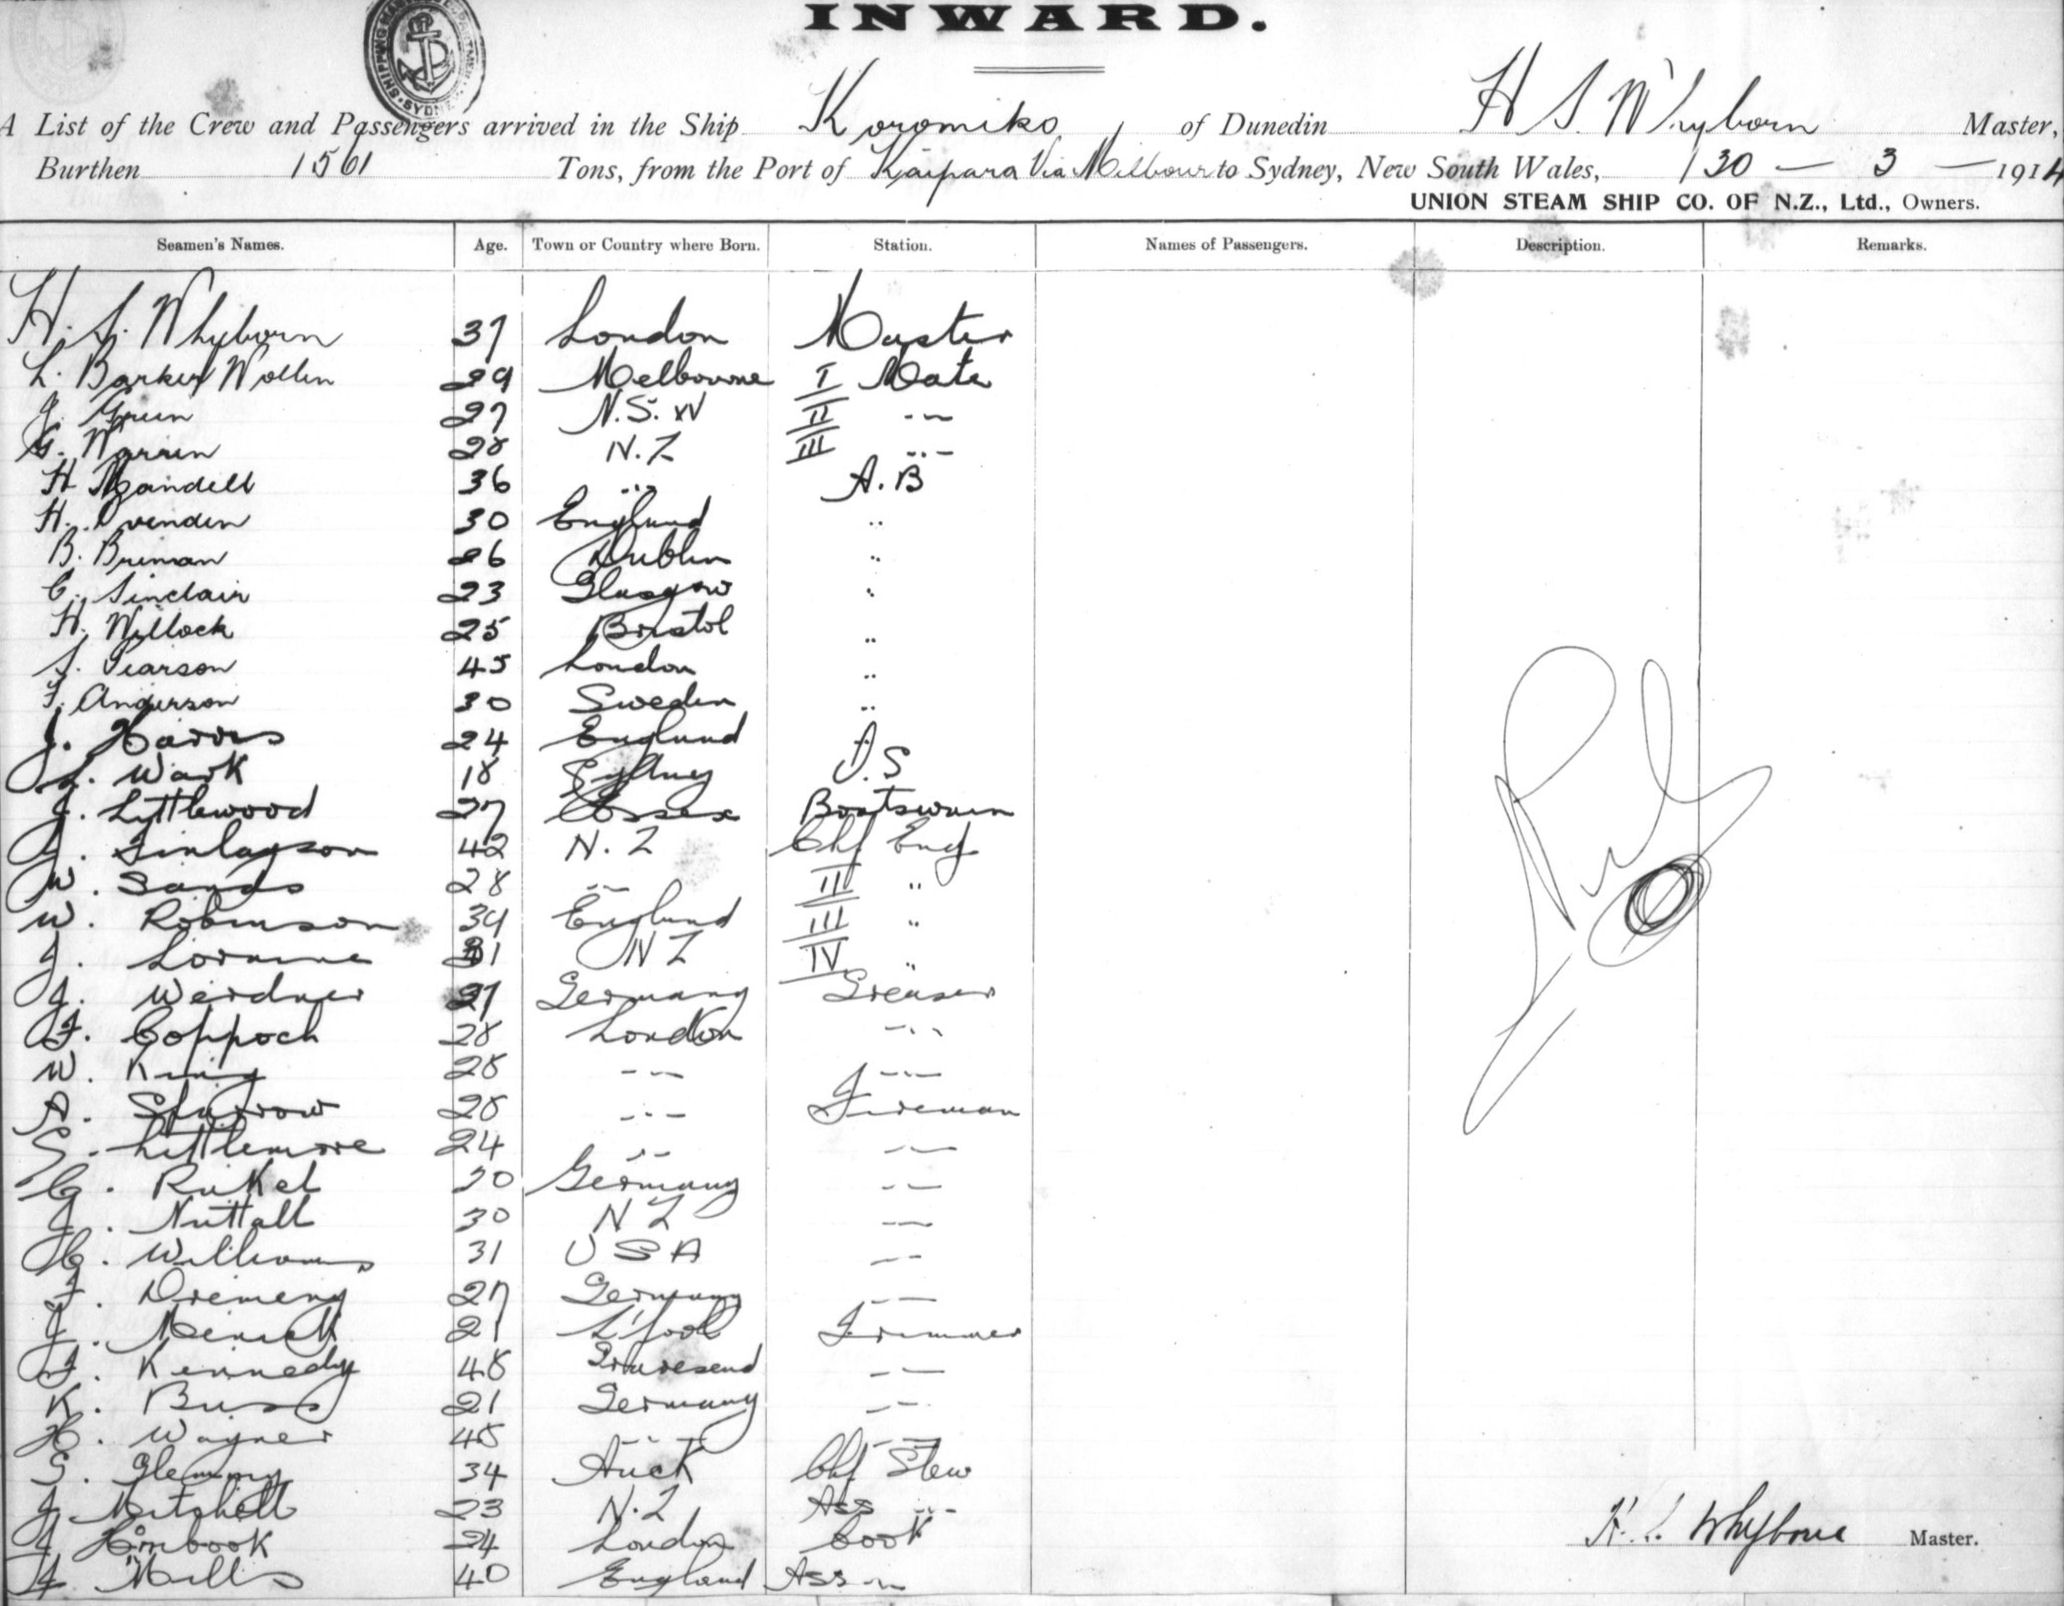 INWARD.
A List of the Crew and Passengers arrived in the Ship Koromiko of Dunedin H S. Whyborn Master,
Burthen 1561 Tons, from the Port of Kaipara Via Melbour to Sydney, New South Wales, 30 — 3 — 1914
UNION STEAM SHIP CO. OF N.Z., Ltd., Owners.
Seamen's Names. Age. Town or Country where Born. Station. Names of Passengers. Description. Remarks.
H. S. Whyborn 37 London Master
L. Barker Wollin 29 Melbourne I Mate
J. Green 27 N.S.W II -- 
G. Warren 28 N.Z III -- 
H Mandell 36 " A.B
H. Ovenden 30 England "
B. Brennan 26 Dublin "
C. Sinclair 23 Glasgow "
H. Willock 25 Bristol "
S. Pearson 45 London "
F. Anderson 30 Sweden "
J. Harris 24 England "
L. Wark 18 Sydney O.S
J. Lyttlewood 27 Essex Boatswain
J. Finlayson 42 N.Z Chf Eng
W. Sands 28 " II "
W. Robinson 39 England III "
J. Lorraine 31 NZ IV "
J. Weidner 27 Germany Greaser
F. Coppock 28 London "
W. King 28 " "
A. Sparrow 28 " Fireman
S. Littlemore 24 " "
C. Rukel 30 Germany "
J. Nuttall 30 NZ "
C. Williams 31 USA "
F. Dremeny 27 Germany "
J. 21 L'pool Trimmer
F. Kennedy 48 Gravesend "
K. Buss 21 Germany "
H. Wagner 48 " "
S. Fleming 34 Auck Chf Stew
J Mitchell 23 N.Z Ass "
J Hornbook 24 London Cook
Mills 40 England Ass "
H. S. Whyborn Master.